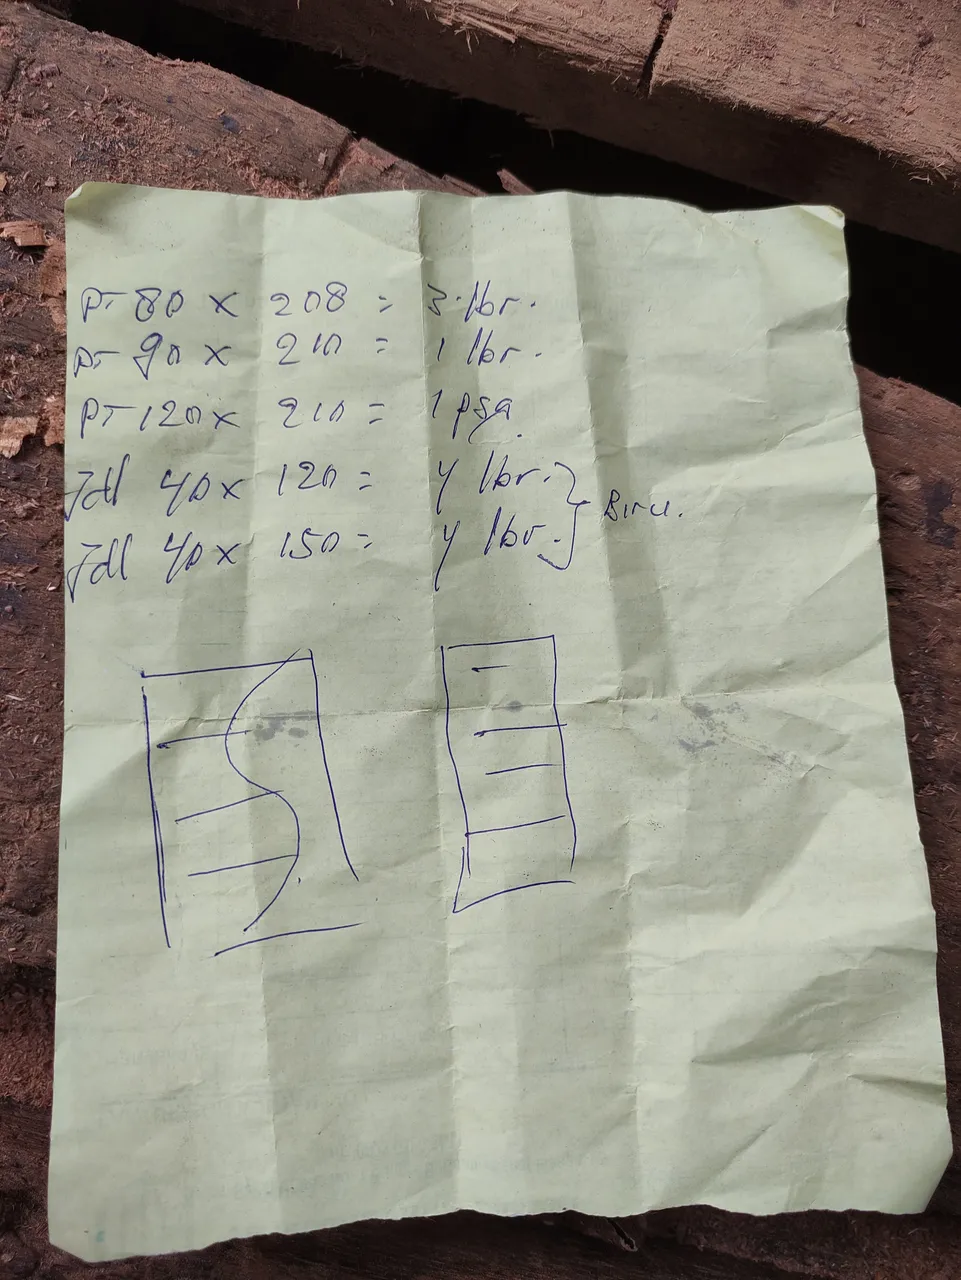 PT 80 x 208 = 3 lbr.
PT 90 x 210 = 1 lbr.
PT 120 x 210 = 1 psg.
Jdl 40 x 120 = 4 lbr.
Jdl 40 x 150 = 4 lbr. } Biru.